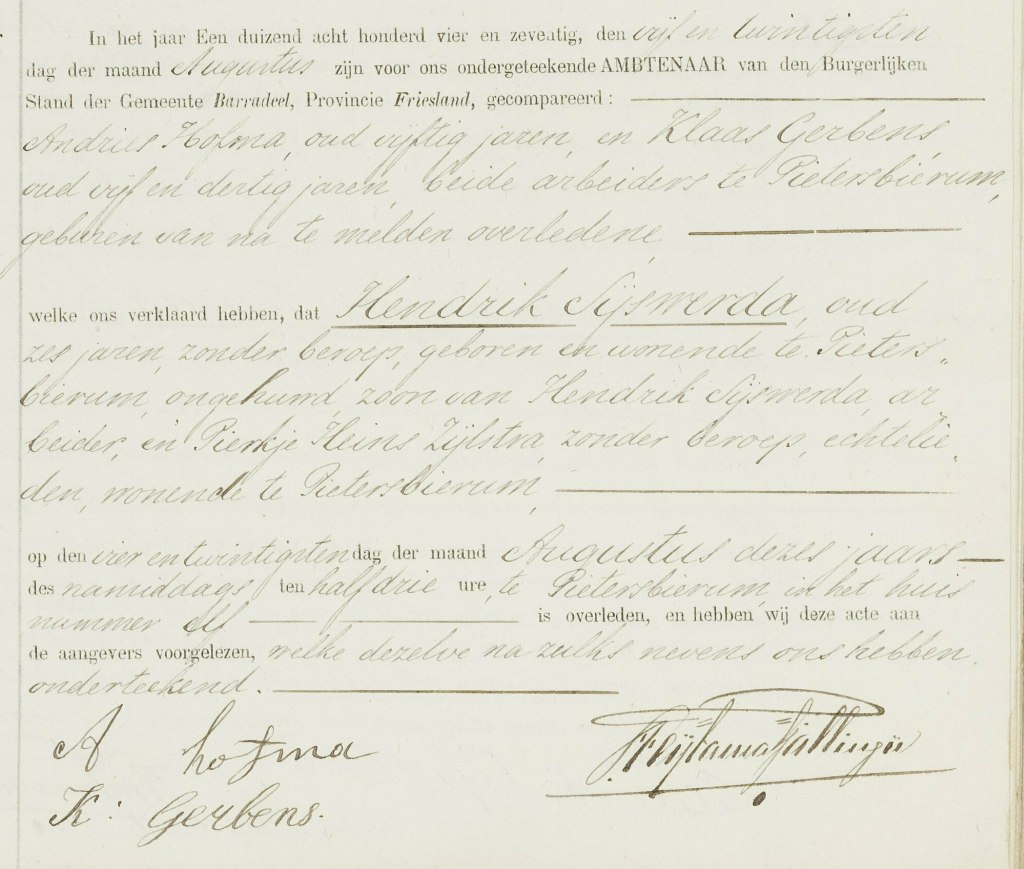 In het jaar Een duizend acht honderd vier en zeventig, den vijf en twintigsten
dag der maand Augustus zijn voor ons ondergeteekende AMBTENAAR van den Burgerlijken
Stand der Gemeente Barradeel, Provincie Friesland, gecompareerd:
Andries Hofma, oud vijftig jaren, en Klaas Gerbens,
oud vijf en dertig jaren, beide arbeiders te Pietersbierum,
geburen van na te melden overledene
welke ons verklaard hebben, dat Hendrik Sijswerda, oud
zes jaren, zonder beroep, geboren en wonende te Pieters„
bierum, ongehuwd, zoon van Hendrik Sijswerda, ar„
beider, en Pierkje Heins Zijlstra, zonder beroep, echtelie„
den, wonende te Pietersbierum,
op den vier en twintigsten dag der maand Augustus dezes jaars
des namiddags ten half drie ure, te Pietersbierum, in het huis
nummer elf is overleden, en hebben wij deze acte aan
de aangevers voorgelezen, welke dezelve na zulks nevens ons hebben
onderteekend.
A hofma
K: Gerbens.